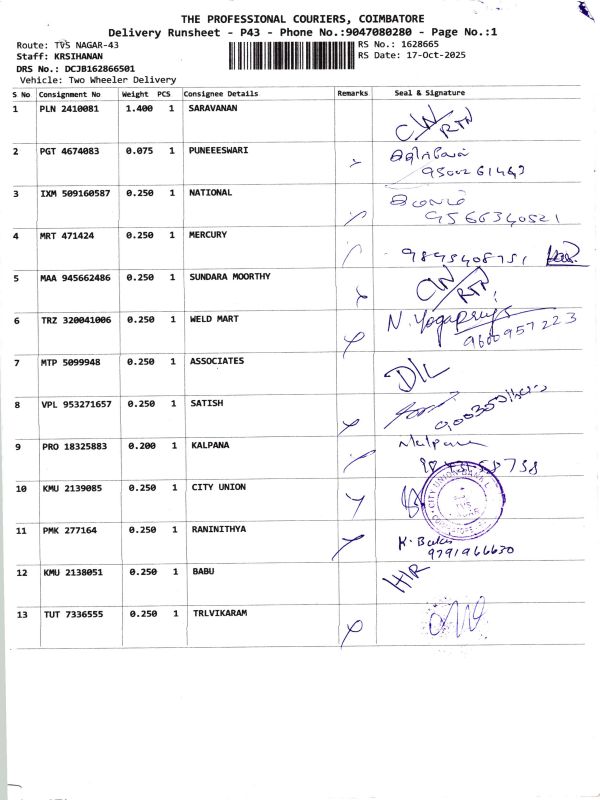 THE PROFESSIONAL COURIERS, COIMBATORE
Delivery Runsheet - P43 - Phone No.:9047080280 - Page No.:1
Route: TVS NAGAR-43 RS No.: 1628665
Staff: KRSIHANAN RS Date: 17-Oct-2025
DRS No.: DCJB162866501
Vehicle: Two Wheeler Delivery
S No Consignment No Weight PCS Consignee Details Remarks Seal & Signature
1 PLN 2410081 1.400 1 SARAVANAN CW/RTN
2 PGT 4674083 0.075 1 PUNEEESWARI
3 IXM 509160587 0.250 1 NATIONAL
9566340521
4 MRT 471424 0.250 1 MERCURY
5 MAA 945662486 0.250 1 SUNDARA MOORTHY CW/RTN
6 TRZ 320041006 0.250 1 WELD MART
9600957223
7 MTP 5099948 0.250 1 ASSOCIATES D/L
8 VPL 953271657 0.250 1 SATISH
9 PRO 18325883 0.200 1 KALPANA
10 KMU 2139085 0.250 1 CITY UNION CITY UNION BANK TVS NAGAR
11 PMK 277164 0.250 1 RANINITHYA
9791966630
12 KMU 2138051 0.250 1 BABU
13 TUT 7336555 0.250 1 TRLVIKARAM